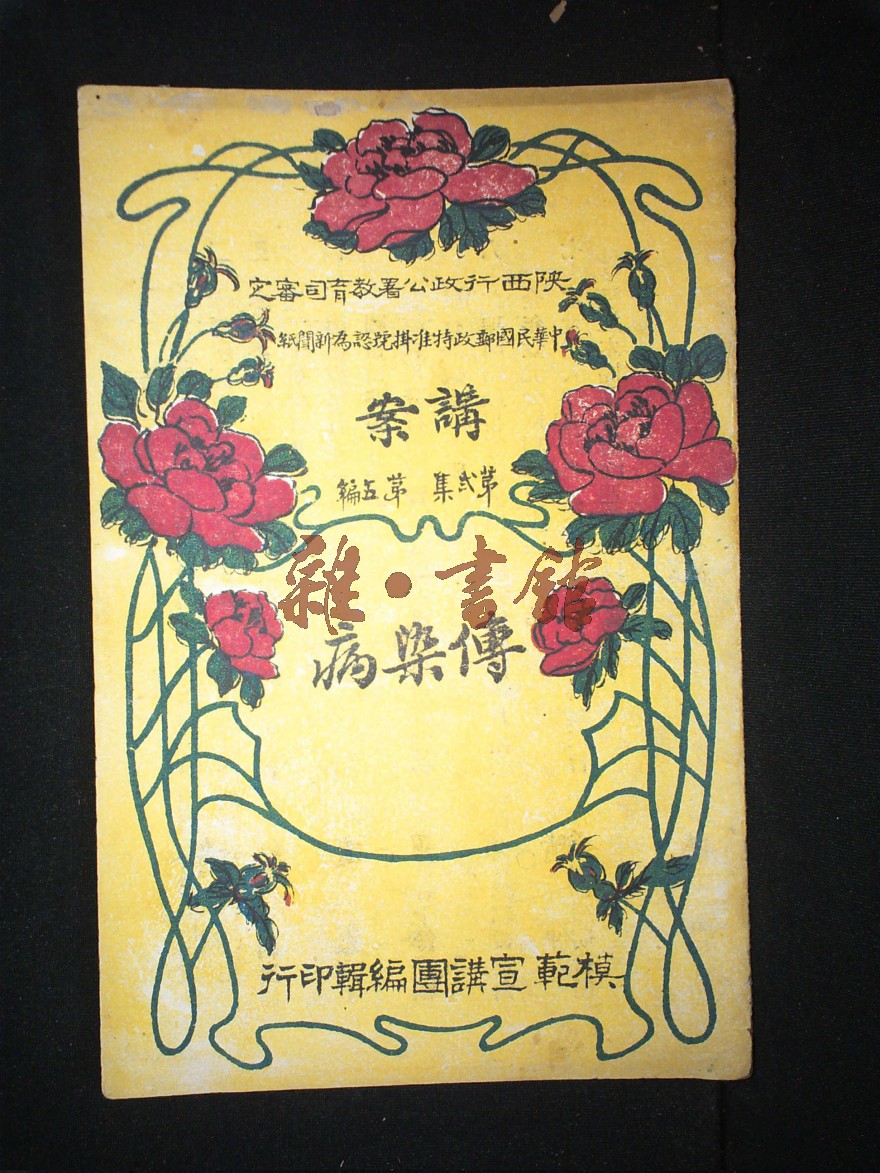 陝西行政公署教育司審定
中華民國郵政特准掛號認為新聞紙
講案
第弍集 第五編
雜·書館
傳染病
模範宣講團編輯印行